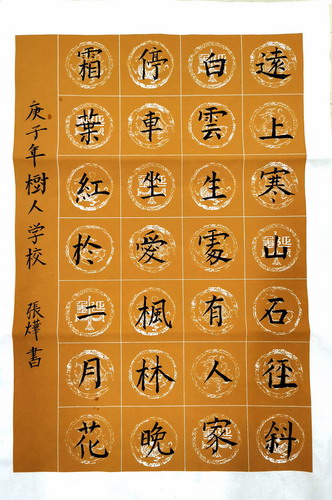 遠上寒山石徑斜
白雲生處有人家
停車坐愛楓林晚
霜葉紅於二月花
庚子年樹人学校 張燁書